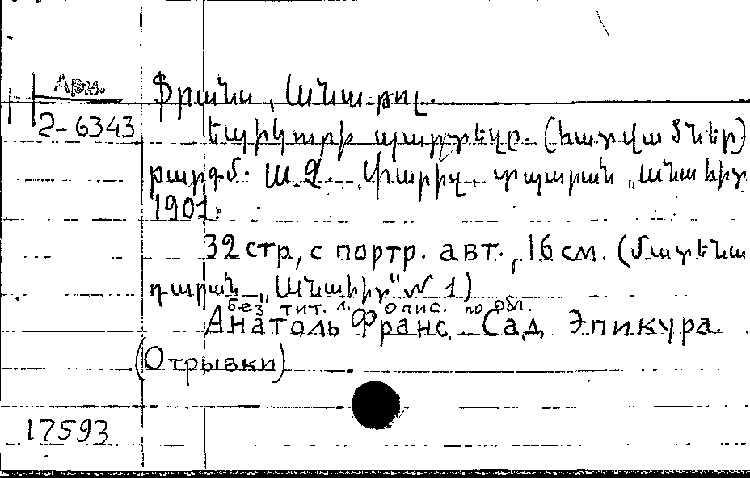 Арм.
2-6343
Ֆրանս, Անաթոլ.
Եպիկուրի պարտէզը. (հատվածներ)
թարգմ. Ա. Զ. Փարիզ, տպարան „Անահիտ
1901.
32 стр, с портр. авт., 16 см. (Մատենա
դարան „Անահիտ" № 1)
без тит. л. опис. по обл.
Анатоль Франс Сад Эпикура
(Отрывки)
17593